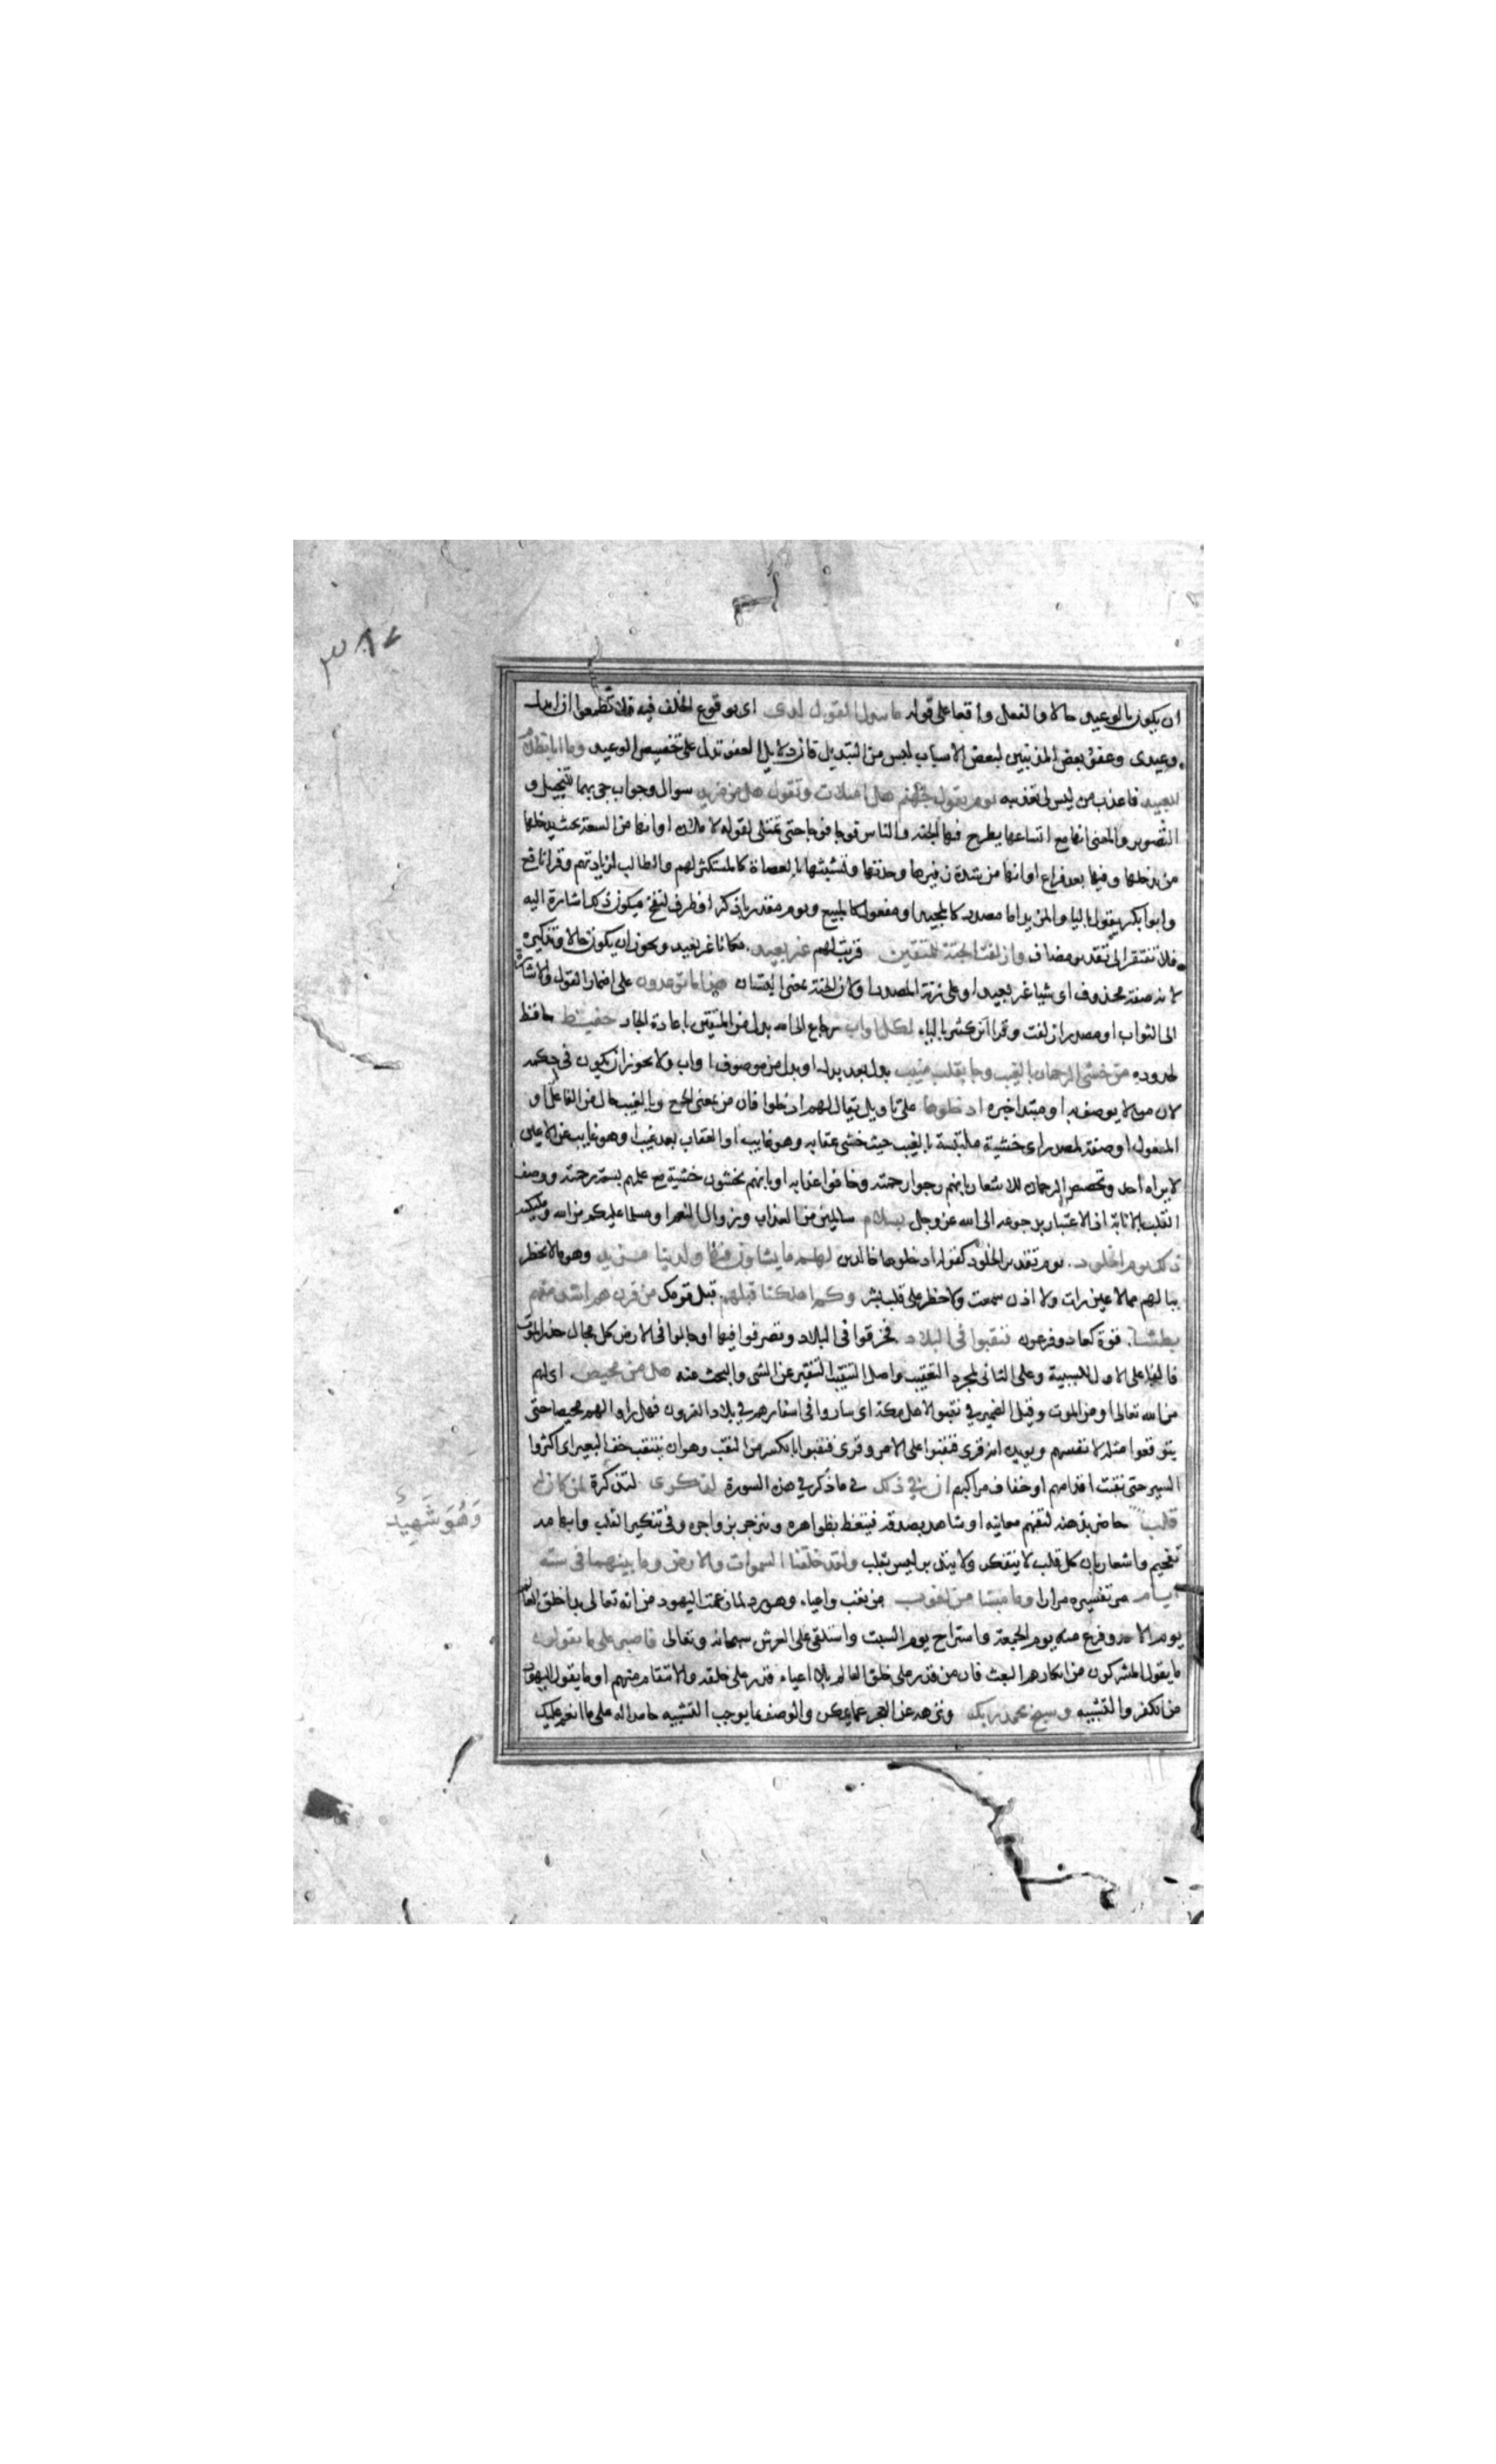 ٣٨٧
ان يكون بالوعيد حالا والفعل واقعا على قوله ما يبدل القول لدى اى بوقوع الخلف فيه فلا تطمعوا ان ابدل
وعيدى وعفو بعض المذنبين لبعض الاسباب ليس من التبديل فان دلايل العفو تدل على تخصيص الوعيد وما انا بظلام
للعبيد فاعذب من ليس لى تعذيبه يوم يقول لجهنم هل امتلات وتقول هل من مزيد سوال وجواب جى بهما للتخييل و
التصوير والمعنى انها مع اتساعها يطرح فيها الجنة والناس فوجا فوجا حتى تمتلى لقوله لاملان او انها من السعة بحيث يدخلها
من يدخلها وفيها بعد فراغ او انها من شدة زفيرها وحدتها وتشبثها بالعصاة كالمستكثر لهم والطالب لزيادتهم وقرا نافع
وابوا بكر يقول باليا والمزيد اما مصدر كالمجيد او مفعول كالمبيع ويوم مقدر باذكر او ظرف لنفخ فيكون ذلك اشارة اليه
فلا تفتقر الى تقدير مضاف وازلفت الجنة للمتقين قربت لهم غير بعيد مكانا غير بعيد ويجوز ان يكون حالا وتذكيره
لانه صفة محذوف اى شيا غير بعيد او على زنة المصدر او لان الجنة بمعنى البستان هذا ما توعدون على اضمار القول والاشارة
الى الثواب او مصدر ازلفت وقرا ابن كثير بالياء لكل اواب رجاع الى الله بدل من المتقين باعادة الجار حفيظ حافظ
لحدوده من خشى الرحمان بالغيب وجا بقلب منيب بدل بعد بدل او بدل من موصوف اواب ولا يجوز ان يكون فى حكمه
لان من لا يوصف به او مبتدا خبره ادخلوها على تاويل يقال لهم ادخلوا فان من بمعنى الجمع وبالغيب حال من الفاعل او
المفعول او صفة لمصدر اى خشية ملتبسة بالغيب حيث خشى عقابه وهو غايب او العقاب بعد غيب او هو غايب عن الاعين
لا يراه احد وتخصيص الرحمان للاشعار بانهم رجوا رحمته وخافوا عذابه او بانهم يخشون خشية مع علمهم بسعة رحمته ووصف
القلب بالانابة اذ الاعتبار برجوعه الى الله عز وجل بسلام سالمين من العذاب وزوال النعم او مسلما عليكم من الله وملايكته
ذلك يوم الخلود يوم تقدير الخلود كقوله ادخلوها خالدين لهم ما يشاون فيها ولدينا مزيد وهو ما لا يخطر
ببالهم مما لا عين رات ولا اذن سمعت ولا خطر على قلب بشر وكم اهلكنا قبلهم قبل قومك من قرن هم اشد منهم
بطشا قوة كعاد وفرعون فنقبوا فى البلاد فخرقوا فى البلاد وتصرفوا فيها او جالوا فى الارض كل مجال حذر الموت
فالفا على الاول للسببية وعلى الثانى لمجرد التعقيب واصل التنقيب التنقير عن الشى والبحث عنه هل من محيص اى لهم
من الله تعالى او من الموت وقيل الضمير فى نقبوا لاهل مكة اى ساروا فى اسفارهم فى بلاد القرون فهل راوا لهم محيصا حتى
يتوقعوا مثله لانفسهم ويويده انه قرى فنقبوا على الامر وقرى فنقبوا بالكسر من النقب وهو ان ينتقب خف البعير اى اكثروا
السير حتى نقبت اقدامهم او خفاف مراكبهم ان فى ذلك فى ما ذكر فى هذه السورة لذكرى لتذكرة لمن كان له
قلب حاضر بذهنه لتفهم معانيه او شاهد بصدقه فيتعظ بظواهره وينزجر بزواجره وفى تنكير القلب وابهامه
تفخيم واشعار بان كل قلب لا يتفكر ولا يتدبر ليس بقلب ولقد خلقنا السموات والارض وما بينهما فى ستة
ايام مر تفسيره مرارا وما مسنا من لغوب من تعب واعياء وهو رد لما زعمت اليهود من انه تعالى بدا خلق العالم
يوم الاحد وفرغ منه يوم الجمعة واستراح يوم السبت واستلقى على العرش سبحانه وتعالى فاصبر على ما يقولون
ما يقول المشركون من انكارهم البعث فان من قدر على خلق العالم بلا اعياء قدر على خلقه والانتقام منهم او ما يقول اليهود
من الكفر والتشبيه وسبح بحمد ربك ونزهه عن العجز عما يمكن والوصف بما يوجب التشبيه حامدا له على ما انعم عليك
وَهُوَ شَهِيدٌ